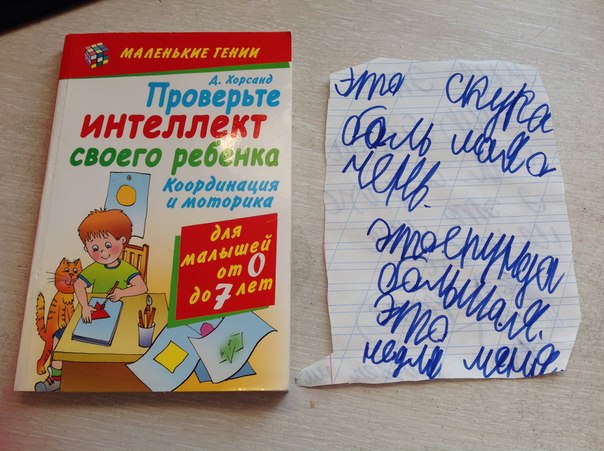 МАЛЕНЬКИЕ ГЕНИИ
Д. Хорсанд
Проверьте
ИНТЕЛЛЕКТ
своего ребенка
Координация
и моторика
для
малышей
от 0
до 7 лет
эта скука
боль
черв.
этоерунда
большая.
Это
недля меня